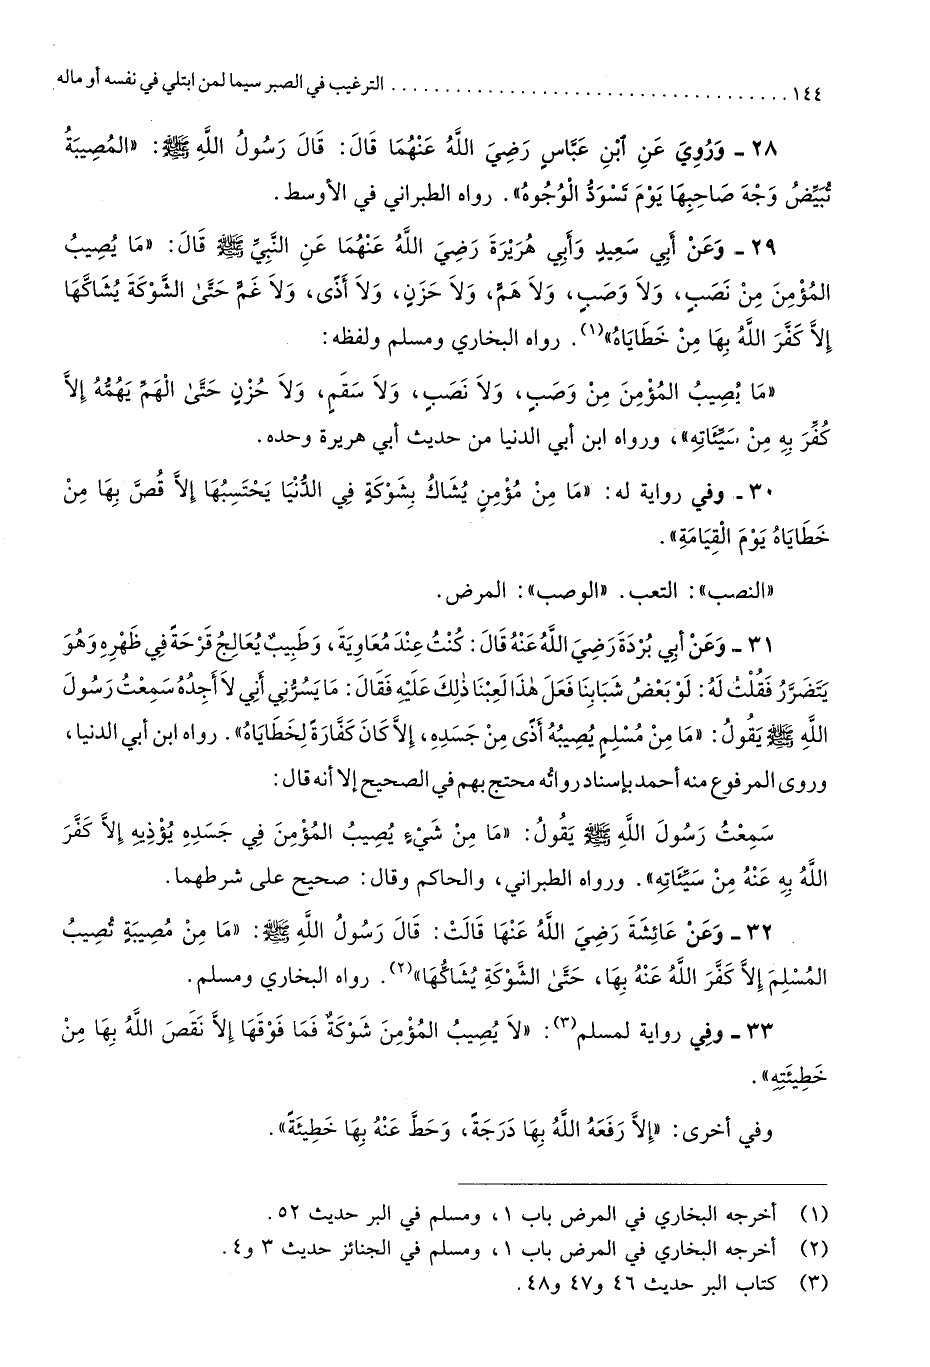 ١٤٤ ........................................ الترغيب في الصبر سيما لمن ابتلي في نفسه أو ماله
٢٨ ـ وَرُوِيَ عَنِ ٱبْنِ عَبَّاسٍ رَضِيَ اللَّهُ عَنْهُمَا قَالَ: قَالَ رَسُولُ اللَّهِ ﷺ: «المُصِيبَةُ
تُبَيِّضُ وَجْهَ صَاحِبِهَا يَوْمَ تَسْوَدُّ الْوُجُوهُ». رواه الطبراني في الأوسط.
٢٩ ـ وَعَنْ أَبِي سَعِيدٍ وَأَبِي هُرَيْرَةَ رَضِيَ اللَّهُ عَنْهُمَا عَنِ النَّبِيِّ ﷺ قَالَ: «مَا يُصِيبُ
المُؤْمِنَ مِنْ نَصَبٍ، وَلاَ وَصَبٍ، وَلاَ هَمٍّ، وَلاَ حَزَنٍ، وَلاَ أَذًى، وَلاَ غَمٍّ حَتَّىٰ الشَّوْكَةَ يُشَاكُهَا
إِلاَّ كَفَّرَ اللَّهُ بِهَا مِنْ خَطَايَاهُ»(١). رواه البخاري ومسلم ولفظه:
«مَا يُصِيبُ المُؤْمِنَ مِنْ وَصَبٍ، وَلاَ نَصَبٍ، وَلاَ سَقَمٍ، وَلاَ حُزْنٍ حَتَّىٰ الْهَمِّ يَهُمُّهُ إِلاَّ
كُفِّرَ بِهِ مِنْ سَيِّئَاتِهِ»، ورواه ابن أبي الدنيا من حديث أبي هريرة وحده.
٣٠ ـ وفي رواية له: «مَا مِنْ مُؤْمِنٍ يُشَاكُ بِشَوْكَةٍ فِي الدُّنْيَا يَحْتَسِبُهَا إِلاَّ قُصَّ بِهَا مِنْ
خَطَايَاهُ يَوْمَ الْقِيَامَةِ».
«النصب»: التعب. «الوصب»: المرض.
٣١ ـ وَعَنْ أَبِي بُرْدَةَ رَضِيَ اللَّهُ عَنْهُ قَالَ: كُنْتُ عِنْدَ مُعَاوِيَةَ، وَطَبِيبٌ يُعَالِجُ قَرْحَةً فِي ظَهْرِهِ وَهُوَ
يَتَضَرَّرُ فَقُلْتُ لَهُ: لَوْ بَعْضُ شَبَابِنَا فَعَلَ هٰذَا لَعِبْنَا ذٰلِكَ عَلَيْهِ فَقَالَ: مَا يَسُرُّنِي أَنِّي لاَ أَجِدُهُ سَمِعْتُ رَسُولَ
اللَّهِ ﷺ يَقُولُ: «مَا مِنْ مُسْلِمٍ يُصِيبُهُ أَذًى مِنْ جَسَدِهِ، إِلاَّ كَانَ كَفَّارَةً لِخَطَايَاهُ». رواه ابن أبي الدنيا،
وروى المرفوع منه أحمد بإسناد رواته محتج بهم في الصحيح إلا أنه قال:
سَمِعْتُ رَسُولَ اللَّهِ ﷺ يَقُولُ: «مَا مِنْ شَيْءٍ يُصِيبُ المُؤْمِنَ فِي جَسَدِهِ يُؤْذِيهِ إِلاَّ كَفَّرَ
اللَّهُ بِهِ عَنْهُ مِنْ سَيِّئَاتِهِ». ورواه الطبراني، والحاكم وقال: صحيح على شرطهما.
٣٢ ـ وَعَنْ عَائِشَةَ رَضِيَ اللَّهُ عَنْهَا قَالَتْ: قَالَ رَسُولُ اللَّهِ ﷺ: «مَا مِنْ مُصِيبَةٍ تُصِيبُ
المُسْلِمَ إِلاَّ كَفَّرَ اللَّهُ عَنْهُ بِهَا، حَتَّىٰ الشَّوْكَةِ يُشَاكُهَا»(٢). رواه البخاري ومسلم.
٣٣ ـ وفِي رواية لمسلم(٣): «لاَ يُصِيبُ المُؤْمِنَ شَوْكَةٌ فَمَا فَوْقَهَا إِلاَّ نَقَصَ اللَّهُ بِهَا مِنْ
خَطِيئَتِهِ».
وفي أخرى: «إِلاَّ رَفَعَهُ اللَّهُ بِهَا دَرَجَةً، وَحَطَّ عَنْهُ بِهَا خَطِيئَةً».
(١) أخرجه البخاري في المرض باب ١، ومسلم في البر حديث ٥٢.
(٢) أخرجه البخاري في المرض باب ١، ومسلم في الجنائز حديث ٣ و٤.
(٣) كتاب البر حديث ٤٦ و٤٧ و٤٨.